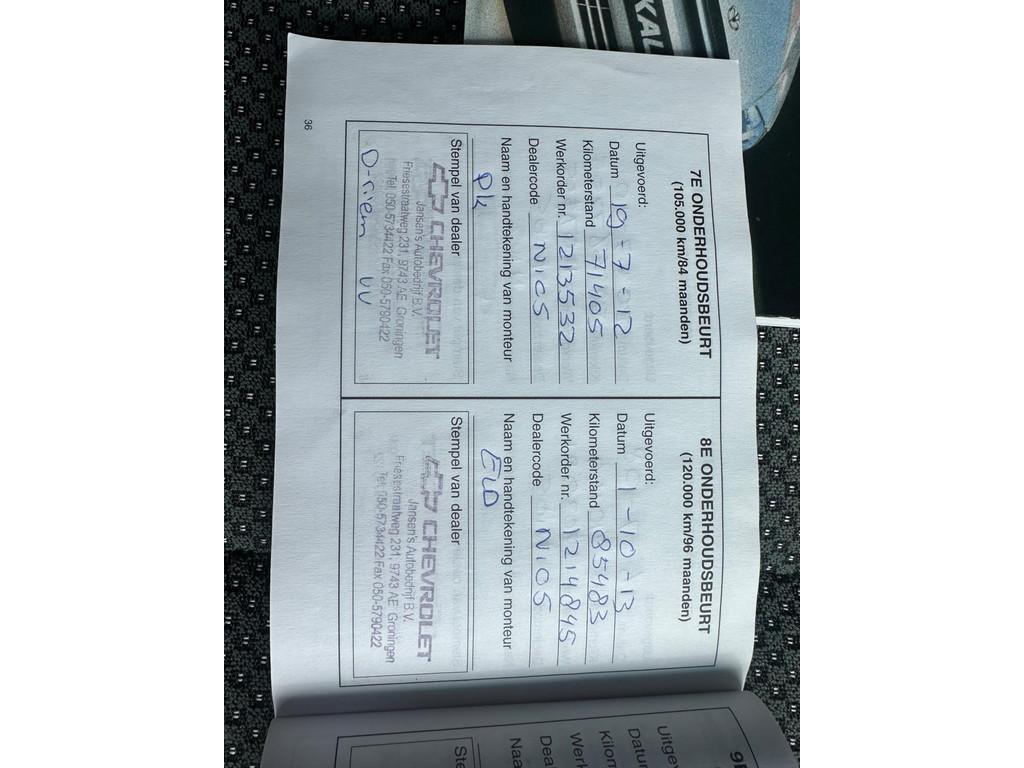 KAL
7E ONDERHOUDSBEURT
(105.000 km/84 maanden)
Uitgevoerd:
Datum 19-7-12
Kilometerstand 71405
Werkorder nr. 1213532
Dealercode N105
Naam en handtekening van monteur
pk
Stempel van dealer
CHEVROLET
Jansen's Autobedrijf B.V.
Friesestraatweg 231, 9743 AE Groningen
Tel. 050-5734422 Fax 050-5790422
D-riem VV
8E ONDERHOUDSBEURT
(120.000 km/96 maanden)
Uitgevoerd:
Datum 1-10-13
Kilometerstand 85483
Werkorder nr. 1214845
Dealercode N105
Naam en handtekening van monteur
ELD
Stempel van dealer
CHEVROLET
Jansen's Autobedrijf B.V.
Friesestraatweg 231, 9743 AE Groningen
Tel. 050-5734422 Fax 050-5790422
36
9E
Uitgev
Datu
Kilom
Werk
Deal
Naa
Ste